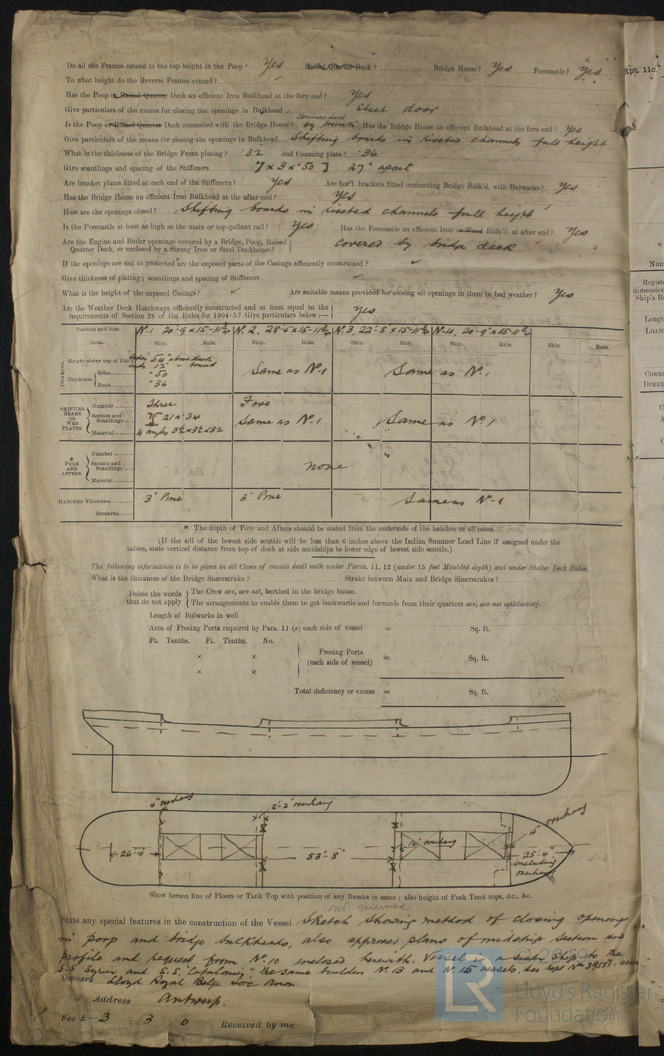 Do all the Frames extend to the top height in the Poop? Yes Raised Quarter Deck? Bridge House? Yes Forecastle? Yes
To what height do the Reverse Frames extend?
Has the Poop or Raised Quarter Deck an efficient Iron Bulkhead at the fore end? Yes
Give particulars of the means for closing the openings in Bulkhead Steel door
Is the Poop or Raised Quarter Deck connected with the Bridge House? Has the Bridge House an efficient Bulkhead at the fore end? Yes
Give particulars of the means for closing the openings in Bulkhead Shifting boards in riveted channels full height
What is the thickness of the Bridge Front plating? .32 and Coaming plate? .36
Give scantlings and spacing of the Stiffeners 7 x 3 x .50 ] 27" apart
Are bracket plates fitted at each end of the Stiffeners? Yes Are hor'l. brackets fitted connecting Bridge Bulk'd. with Bulwarks? Yes
Has the Bridge House an efficient Iron Bulkhead at the after end? Yes
How are the openings closed? Shifting boards in riveted channels full height
Is the Forecastle at least as high as the main or top-gallant rail? Yes Has the Forecastle an efficient Iron or Wood Bulk'd. at after end? Yes
Are the Engine and Boiler openings covered by a Bridge, Poop, Raised
Quarter Deck, or enclosed by a Strong Iron or Steel Deckhouse? covered by bridge deck
If the openings are not so protected are the exposed parts of the Casings efficiently constructed?
Give thickness of plating; scantlings and spacing of Stiffeners
What is the height of the exposed Casings? Are suitable means provided for closing all openings in them in bad weather? Yes
Are the Weather Deck Hatchways efficiently constructed and at least equal to the
requirements of Section 28 of the Rules for 1904-5? Give particulars below:— Yes
Position and Size. No. 1 No. 2 No. 3 No. 4
Item. Ship. Rule. Ship. Rule. Ship. Rule. Ship. Rule. Ship. Rule.
COAMING Height above top of Deck
Thickness Sides .50 Same as No. 1 Same as No. 1
Ends .36
SHIFTING BEAMS OR WEB PLATES Number Three Five
Section and Scantlings 21 x .34 Same as No. 1 Same as No. 1
Material
* FORE AND AFTERS. Number
Section and Scantlings none
Material
HATCHES Thickness 3" Pine 3" Pine Same as No. 1
Remarks
* The depth of Fore and Afters should be stated from the underside of the hatches in all cases.
(If the sill of the lowest side scuttle will be less than 6 inches above the Indian Summer Load Line if assigned under the
tables, state vertical distance from top of deck at side amidships to lower edge of lowest side scuttle.)
The following information is to be given in all Cases of vessels dealt with under Paras. 11, 12 (under 15 feet Moulded depth) and under Shelter Deck Rules.
What is the thickness of the Bridge Sheerstrake? Strake between Main and Bridge Sheerstrakes?
Delete the words The Crew are, are not, berthed in the bridge house.
that do not apply The arrangements to enable them to get backwards and forwards from their quarters are, are not satisfactory.
Length of Bulwarks in well
Area of Freeing Ports required by Para. 11 (e) each side of vessel = Sq. ft.
Ft. Tenths. Ft. Tenths. No.
× × Freeing Ports
(each side of vessel) = Sq. ft.
× ×
Total deficiency or excess = Sq. ft.
2'-2" overhang
26'-0 53'-8" 25'-4"
including
overhang
Show hereon line of Floors or Tank Top with position of any Breaks in same; also height of Peak Tank tops, &c., &c.
not received
State any special features in the construction of the Vessel Sketch showing method of closing openings
in poop and bridge bulkheads, also approved plans of midship section and
profile and request from No. 10 enclosed herewith. Vessel is a sister ship to the
S.S. Syrier and S.S. "Capulonia" the same builders No. 13 and No. 15 vessels
Owners Lloyd Royal Belge Soc Anon
Address Antwerp
Fee £ 3 : 3 0 Received by me
Rpt. 11c.
LR
Lloyd's Register
Foundation